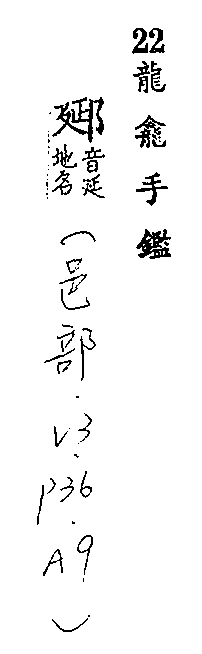 22龍龕手鑑
郔音延地名(邑部.V3.P36.A9)